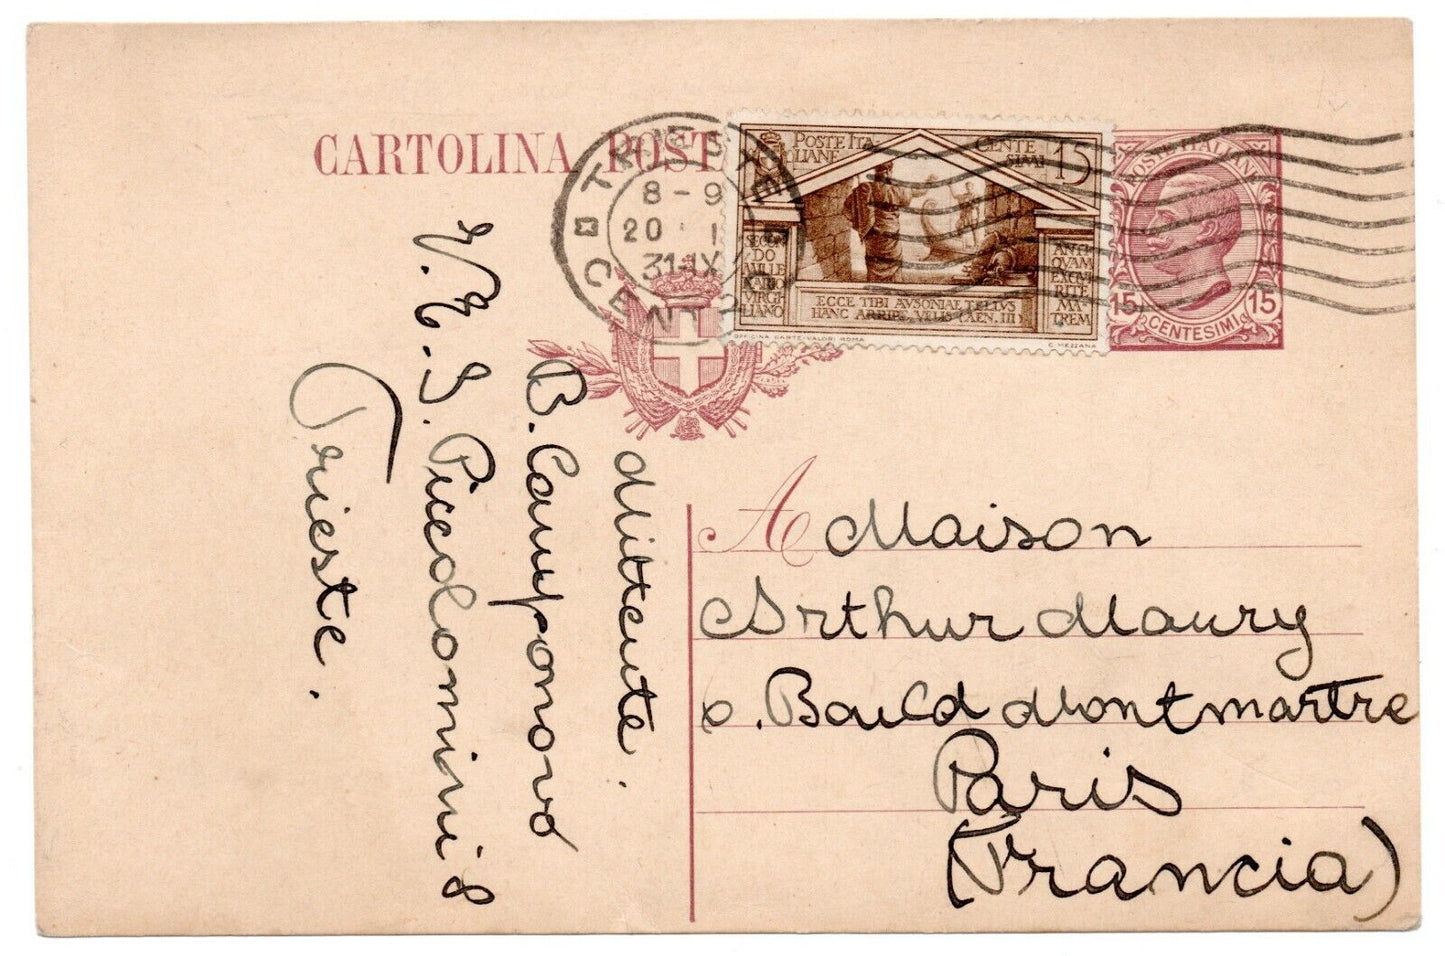 CARTOLINA POST
TRIESTE
8-9
20 I
31-IX
CENTRO
POSTE ITALIANE
CENTESIMI 15
SECONDO MILLENARIO VIRGILIANO
ANTIQVAM EXQVIRITE MATREM
ECCE TIBI AVSONIAE TELLVS
HANC ARRIPE VELIS (AEN. III)
OFFICINA CARTE-VALORI ROMA
C. MEZZANA
POSTE ITALIANE
15 15
CENTESIMI
Mittente.
B. Camponovo
V. E. S. Piccolomini 8
Trieste.
A Maison
Arthur Maury
6. Bould Montmartre
Paris
(Francia)